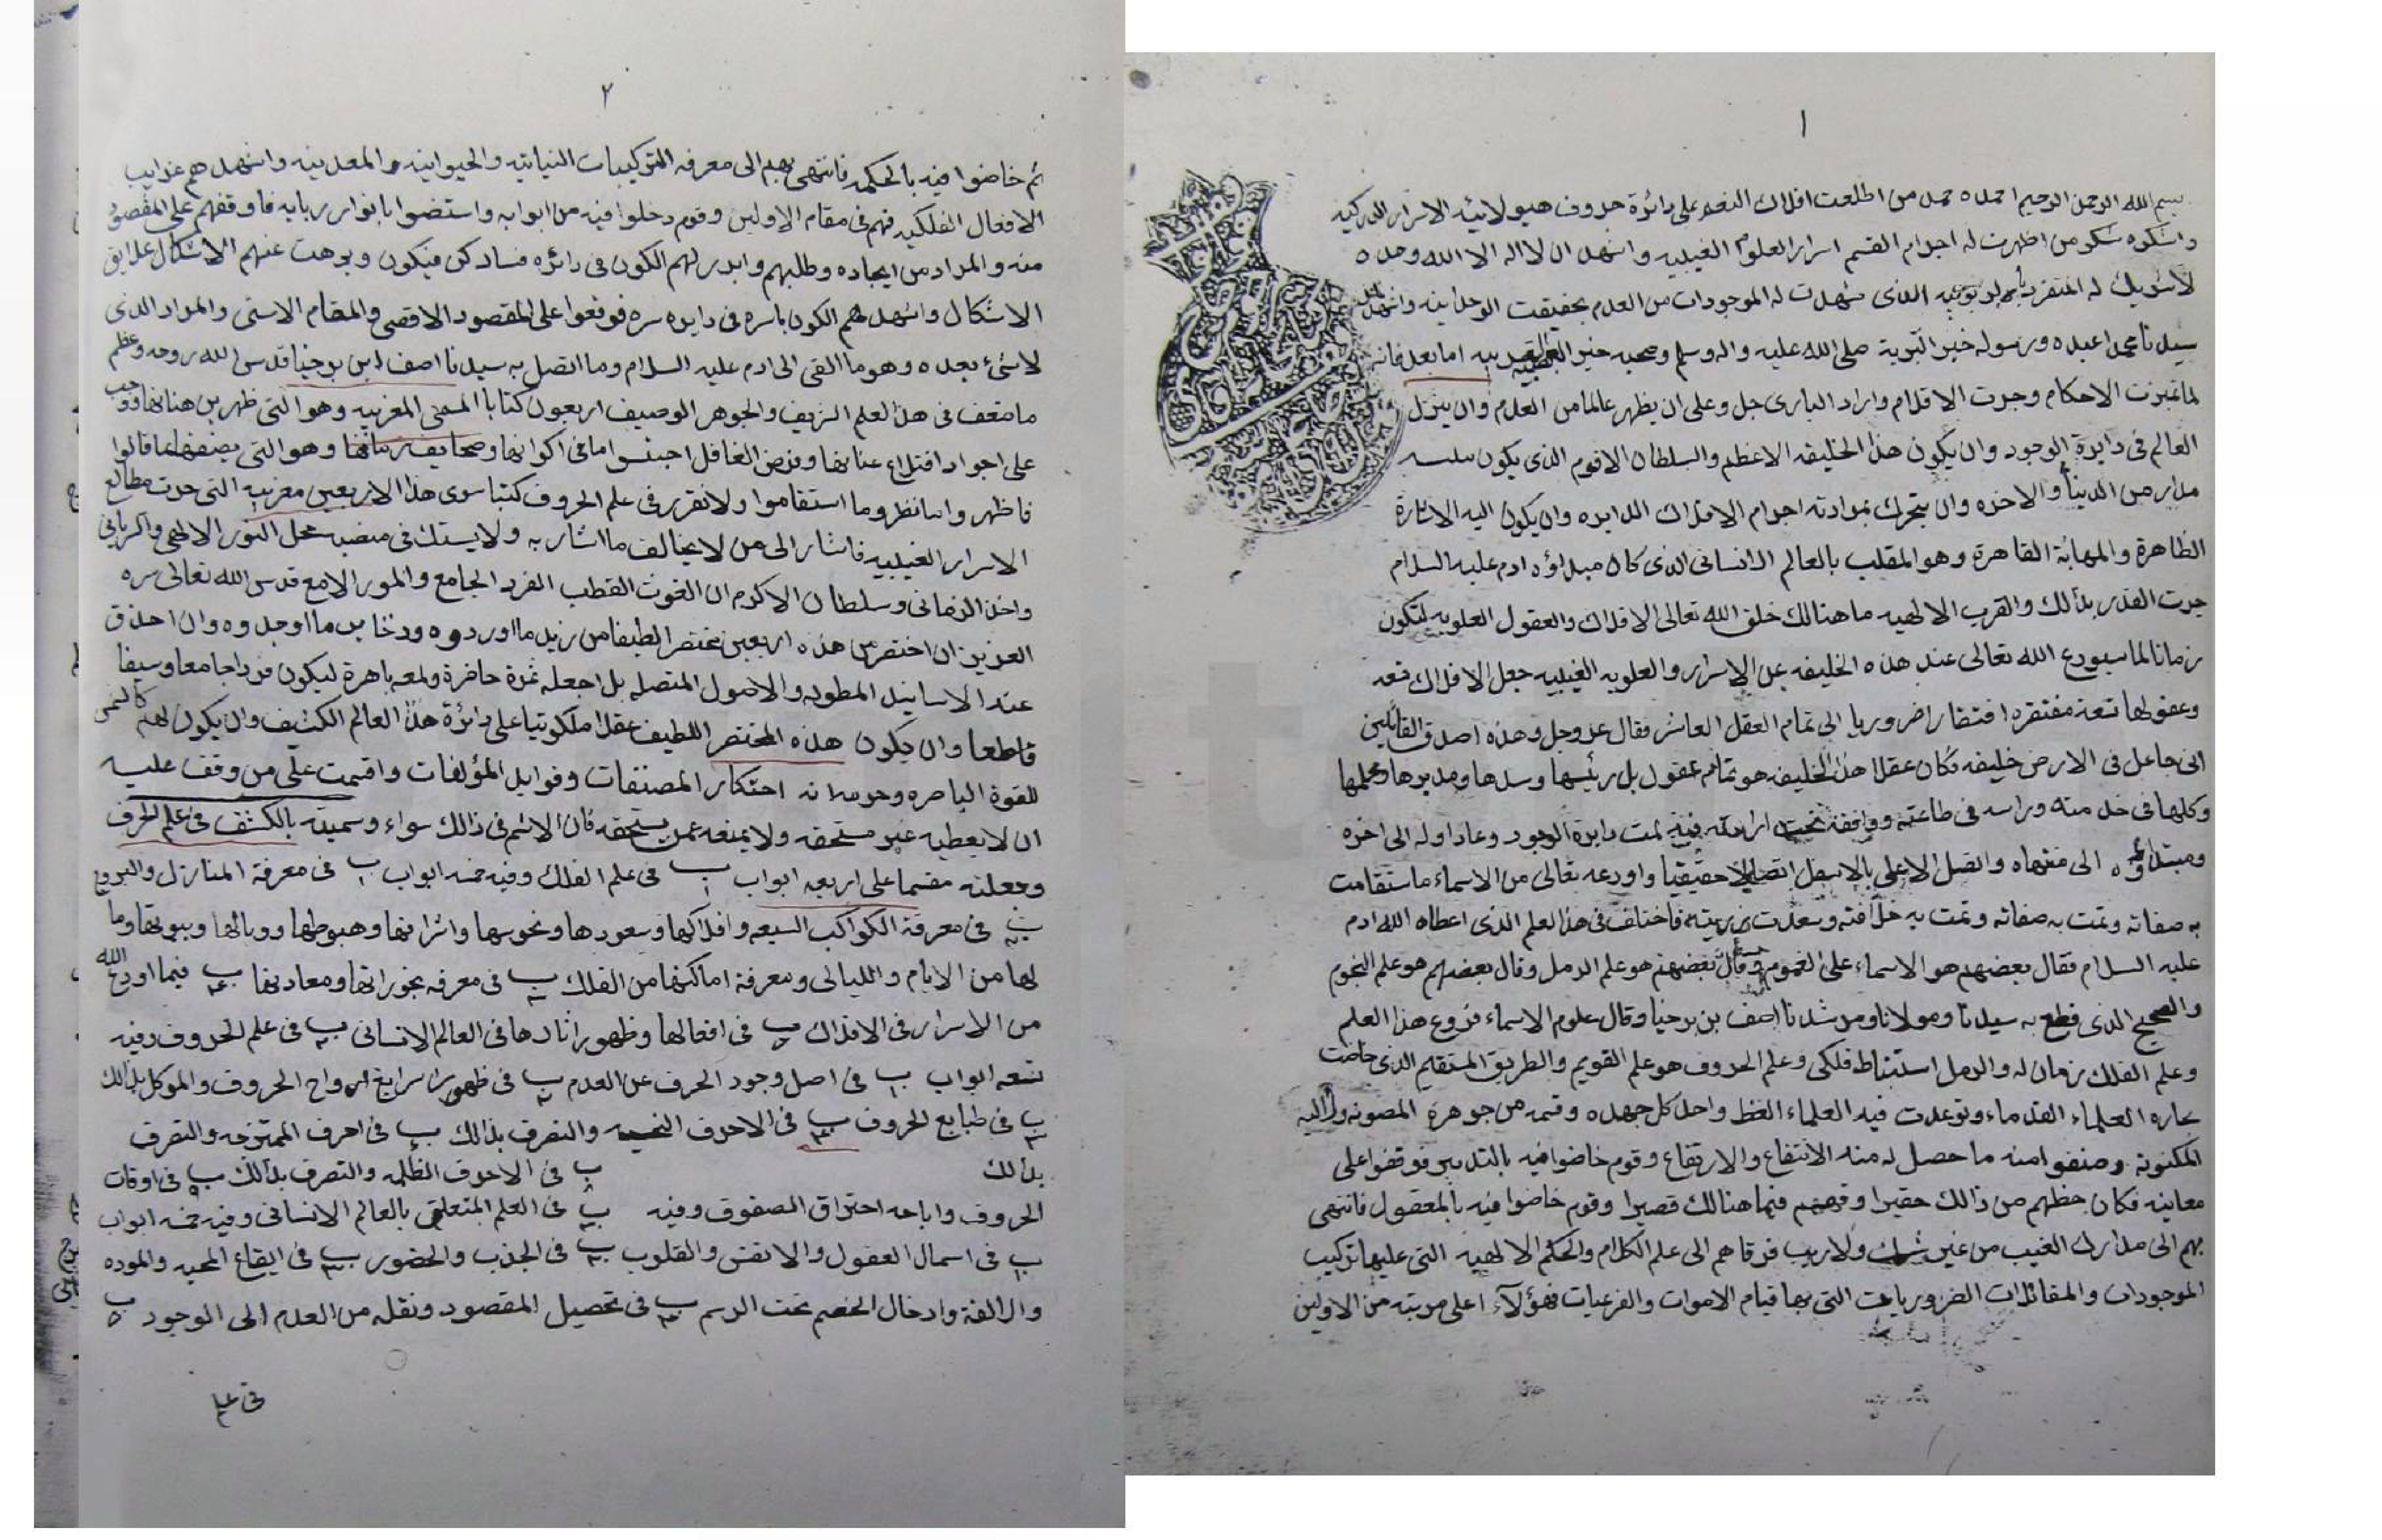 ١
بسم الله الرحمن الرحيم احمده حمد من اطلعت افلاك النعم على دائرة حروف هيولانيه الاسرار
واشكره شكر من اظهرت له اجرام القسم اسرار العلوم الغيبيه واشهد ان لا اله الا الله وحده
لا شريك له المنفرد الذى شهدت له الموجودات من العدم بحقيقت الوحدانيه واشهد
سيدنا محمدا عبده ورسوله خير البرية صلى الله عليه واله وسلم وصحبه اما بعد فانه
لما تميزت الاحكام وجرت الاقلام واراد البارى جل وعلى ان يظهر عالما من العدم وان ينزل
العالم فى دايرة الوجود وان يكون هذا الخليفه الاعظم والسلطان الاقوم الذى يكون
مدار من الدنيا والاخره وان يتحرك بموادته اجرام الافلاك الدايره وان يكون اليه الاشارة
الظاهرة والمهابة القاهرة وهو المقلب بالعالم الانسانى الذى كان مبداؤه ادم عليه السلام
جرت القدر بذالك والقرب الالهيه ما هنالك خلق الله تعالى الافلاك والعقول العلويه لتكون
زمانا لما سيودع الله تعالى عند هذه الخليفه من الاسرار والعلويه الغيبيه جعل الافلاك تسعه
وعقولها تسعة مفتقره افتقارا ضروريا الى تمام العقل العاشر فقال عز وجل وهذه اصدق القائلين
انى جاعل فى الارض خليفه فكان عقلا هذا الخليفه هو تمام عقول بل رئيسها وسدها ومدبرها
وكلها فى خل منه وراسه فى طاعته ووافقة تحت ارادته فيه تمت دايرة الوجود وعاد اوله الى اخره
ومبتداؤه الى منتهاه واتصل الاعلى بالاسفل اتصالا حقيقيا واودعه تعالى من الاسماء ما ستقامت
به صفاته وتمت به صفاته وتمت به خلافته وسعدت فاختلف فى هذا العلم الذى اعطاه الله ادم
عليه السلام فقال بعضهم هو الاسماء على العموم وقال بعضهم هو علم الرمل وقال بعضهم هو علم النجوم
والصحيح الذى قطع به سيدنا ومولانا ومرشدنا اصف بن برخيا وقال علوم الاسماء فروع هذا العلم
وعلم الفلك زمان له والرمل استنباط فلكى وعلم الحروف هو علم القويم والطريق المستقيم الذى خاضت
العلماء القدماء وتوعدت فيه العلماء العظ واحد كل جهده وقسمه من جوهرة المصونه
المكنونة وصنفوا منه ما حصل له منه الانتفاع والارتفاع وقوم خاضوا فيه بالتدبير فوقفوا على
معانيه فكان حظهم من ذالك حقيرا فيما هنالك قصيرا وقوم خاضوا فيه بالمعقول فانتهى
بهم الى مدارك الغيب من غير شك ولا ريب فرقاهم الى علم الكلام والحكم الالهيه التى عليها تركيب
الموجودات والمقالات الضروريات التى بها قيام الاموات والفرعيات فهؤلآء اعلى مرتبته من الاولين
٢
ثم خاضوا فيه بالحكمه فانتهى بهم الى معرفه التركيبات النباتيه والحيوانيه والمعدنيه واشهدهم غرايب
الافعال الفلكيه فهم فى مقام الاولين وقوم دخلوا فيه من ابوابه واستضوا بانوار ربابه فاوقفهم على المقصود
منه والمراد من ايجاده وطلبهم وابدر لهم الكون فى دائره فساد كن فيكون وبرهت عنهم الاشكال علايق
الاشكال واشهدهم الكون باسره فى دايره سره فوقعوا على المقصود الاقصى والمقام الاسنى والمراد الذى
لا شئ بعده وهو ما القى الى ادم عليه السلام وما اتصل به سيدنا اصف ابن برخيا قدس الله روحه وعظم
ما ضعف فى هذا العلم الزيف والجوهر الوصيف اربعون كتابا المسمى المغربيه وهو التى ظهر بين هنا
على اجواد اقتلاع عنانها وفرض الغافل اجنسوا ما فى اكوانها وصحايف زمانها وهو التى قالوا
فاظهر واما نظر وما استقاموا ولا تقرر فى علم الحروف كتبا سوى هذا الاربعين مغربيه التى حوت مطالع
الاسرار الغيبيه فاشار الى من لا يخالف ما اشار به ولا يستك فى منصبه محل النور الالهى
واخذ الزمانى وسلطان الاكرم ان الغوث القطب الفرد الجامع والنور الامع قدس الله تعالى سره
العزيز ان اختصر من هذه اربعين مختصرا لطيفا من زبد ما اوردوه ما اوجدوه وان احذق
عند الاسانيد المطوله والاصول المتصله بل اجعله غرة حاضرة ولمعه باهرة ليكون فردا جامعا وسيفا
قاطعا وان يكون هذه المختصر اللطيف عقلا ملكوتيا على دائرة هذا العالم الكثيف وان يكون لهم كالشمس
للقوة الباصره احتكار المصنفات وفوايد المؤلفات واقسمت على من وقف عليه
ان لا يعطيه غير مستحقه ولا يمنعه عمن يستحقه فان الاثم فى ذالك سواء وسميته بالكشف فى علم الحرف
وجعلته مقسما على اربعه ابواب ب١ فى علم الفلك وفيه خمسه ابواب ب١ فى معرفة المنازل والبروج
ب٢ فى معرفة الكواكب السبعه وافلاكها وسعودها ونحوسها واشرافها وهبوطها ووبالها وبيوتها وما
لها من الايام والليالى ومعرفة اماكنها من الفلك ب٣ فى معرفه بخوراتها ومعادنها ب٤ فيما اودع الله
من الاسرار فى الافلاك ب٥ فى افعالها وظهور اثارها فى العالم الانسانى ب٢ فى علم الحروف وفيه
تسعه ابواب ب١ فى اصل وجود الحرف عن العدم ب٢ فى ظهور اسرايع ارواح الحروف والموكل بذالك
ب٣ فى طبايع الحروف ب٤ فى الاحرف والتصرف بذالك ب فى احرف الممتزجه والتصرف
بذالك ب٨ فى الاحرف الظلمه والتصرف بذالك ب٩ فى اوقات
الحروف واباحه احتراق الصفوف وفيه ب٣ فى العلم المتعلق بالعالم الانسانى وفيه خمسه ابواب
ب١ فى اسمال العقول والانفس والقلوب ب٢ فى الجذب والحضور ب٣ فى ايقاع المحبه والموده
والالفة وادخال الخصم تحت الرسم ب٤ فى تحصيل المقصود ونقله من العدم الى الوجود ب٥